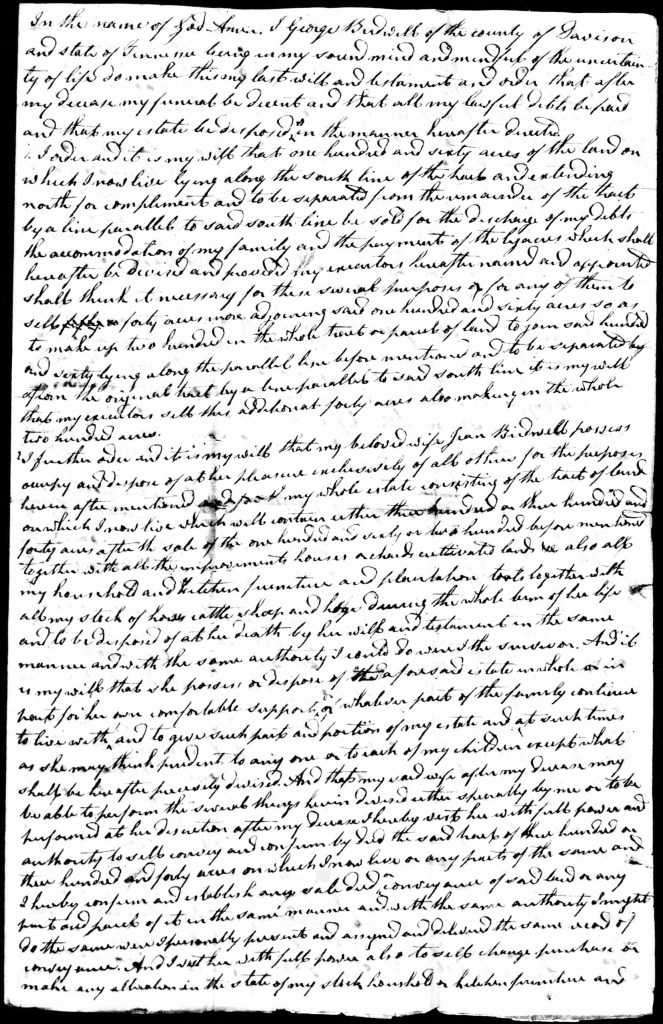 In the name of God Amen. I George Bidwell of the county of Davison
and state of Tennessee being in my sound mind and mindful of the uncertain-
ty of life do make this my last will and testament and order that after
my decease my funeral be decent and that all my lawful debts be paid
and that my estate be disposed in the manner hereafter directed
1. I order and it is my will that one hundred and sixty acres of the land on
which I now live lying along the south line of the tract and extending
north for compliment and to be separated from the remainder of the tract
by a line parallel to said south line be sold for the discharge of my debts
the accommodation of my family and the payment of the legacies which shall
hereafter be devised and provided my executors hereafter named and appointed
shall think it necessary for these several purposes or for any of them to
sell forty acres more adjoining said one hundred and sixty acres so as
to make up two hundred in the whole tract or parcel of land to join said hundred
and sixty lying along the parallel line before mentioned and to be separated by
from the original tract by a line parallel to said south line it is my will
that my executors sell this additional forty acres also making in the whole
two hundred acres.
2 I further order and it is my will that my beloved wife Jean Bidwell possess
occupy and dispose of at her pleasure exclusively of all others for the purposes
herein after mentioned my whole estate consisting of the tract of land
on which I now live which will contain either three hundred or three hundred and
forty acres after the sale of the one hundred and sixty or two hundred before mentioned
together with all the improvements houses orchards cultivated lands &c also all
my household and kitchen furniture and plantation tools together with
all my stock of horses cattle sheep and hogs during the whole term of her life
and to be disposed of at her death by her will and testament in the same
manner and with the same authority I could do were I the survivor. And it
is my will that she possess or dispose of the aforesaid estate in whole or in
part for her own comfortable support, or whatever part of the family continue
to live with, and to give such part and portion of my estate and at such times
as she may think prudent to any one or to each of my children except what
shall be hereafter precisely devised. And that my said wife after my decease may
be able to perform the several things herein devised either specially by me or to be
performed at her discretion after my decease I hereby vest her with full power and
authority to sell convey and confirm by deed the said tract of three hundred or
three hundred and forty acres on which I now live or any parts of the same and
I hereby confirm and establish any sale deed or conveyance of said land or any
part and parcel of it in the same manner and with the same authority I might
do the same were I personally present and assigned and delivered the same deed of
conveyance. And I vest her with full power also to sell change purchase or
make any alteration in the state of my stock household or kitchen furniture and